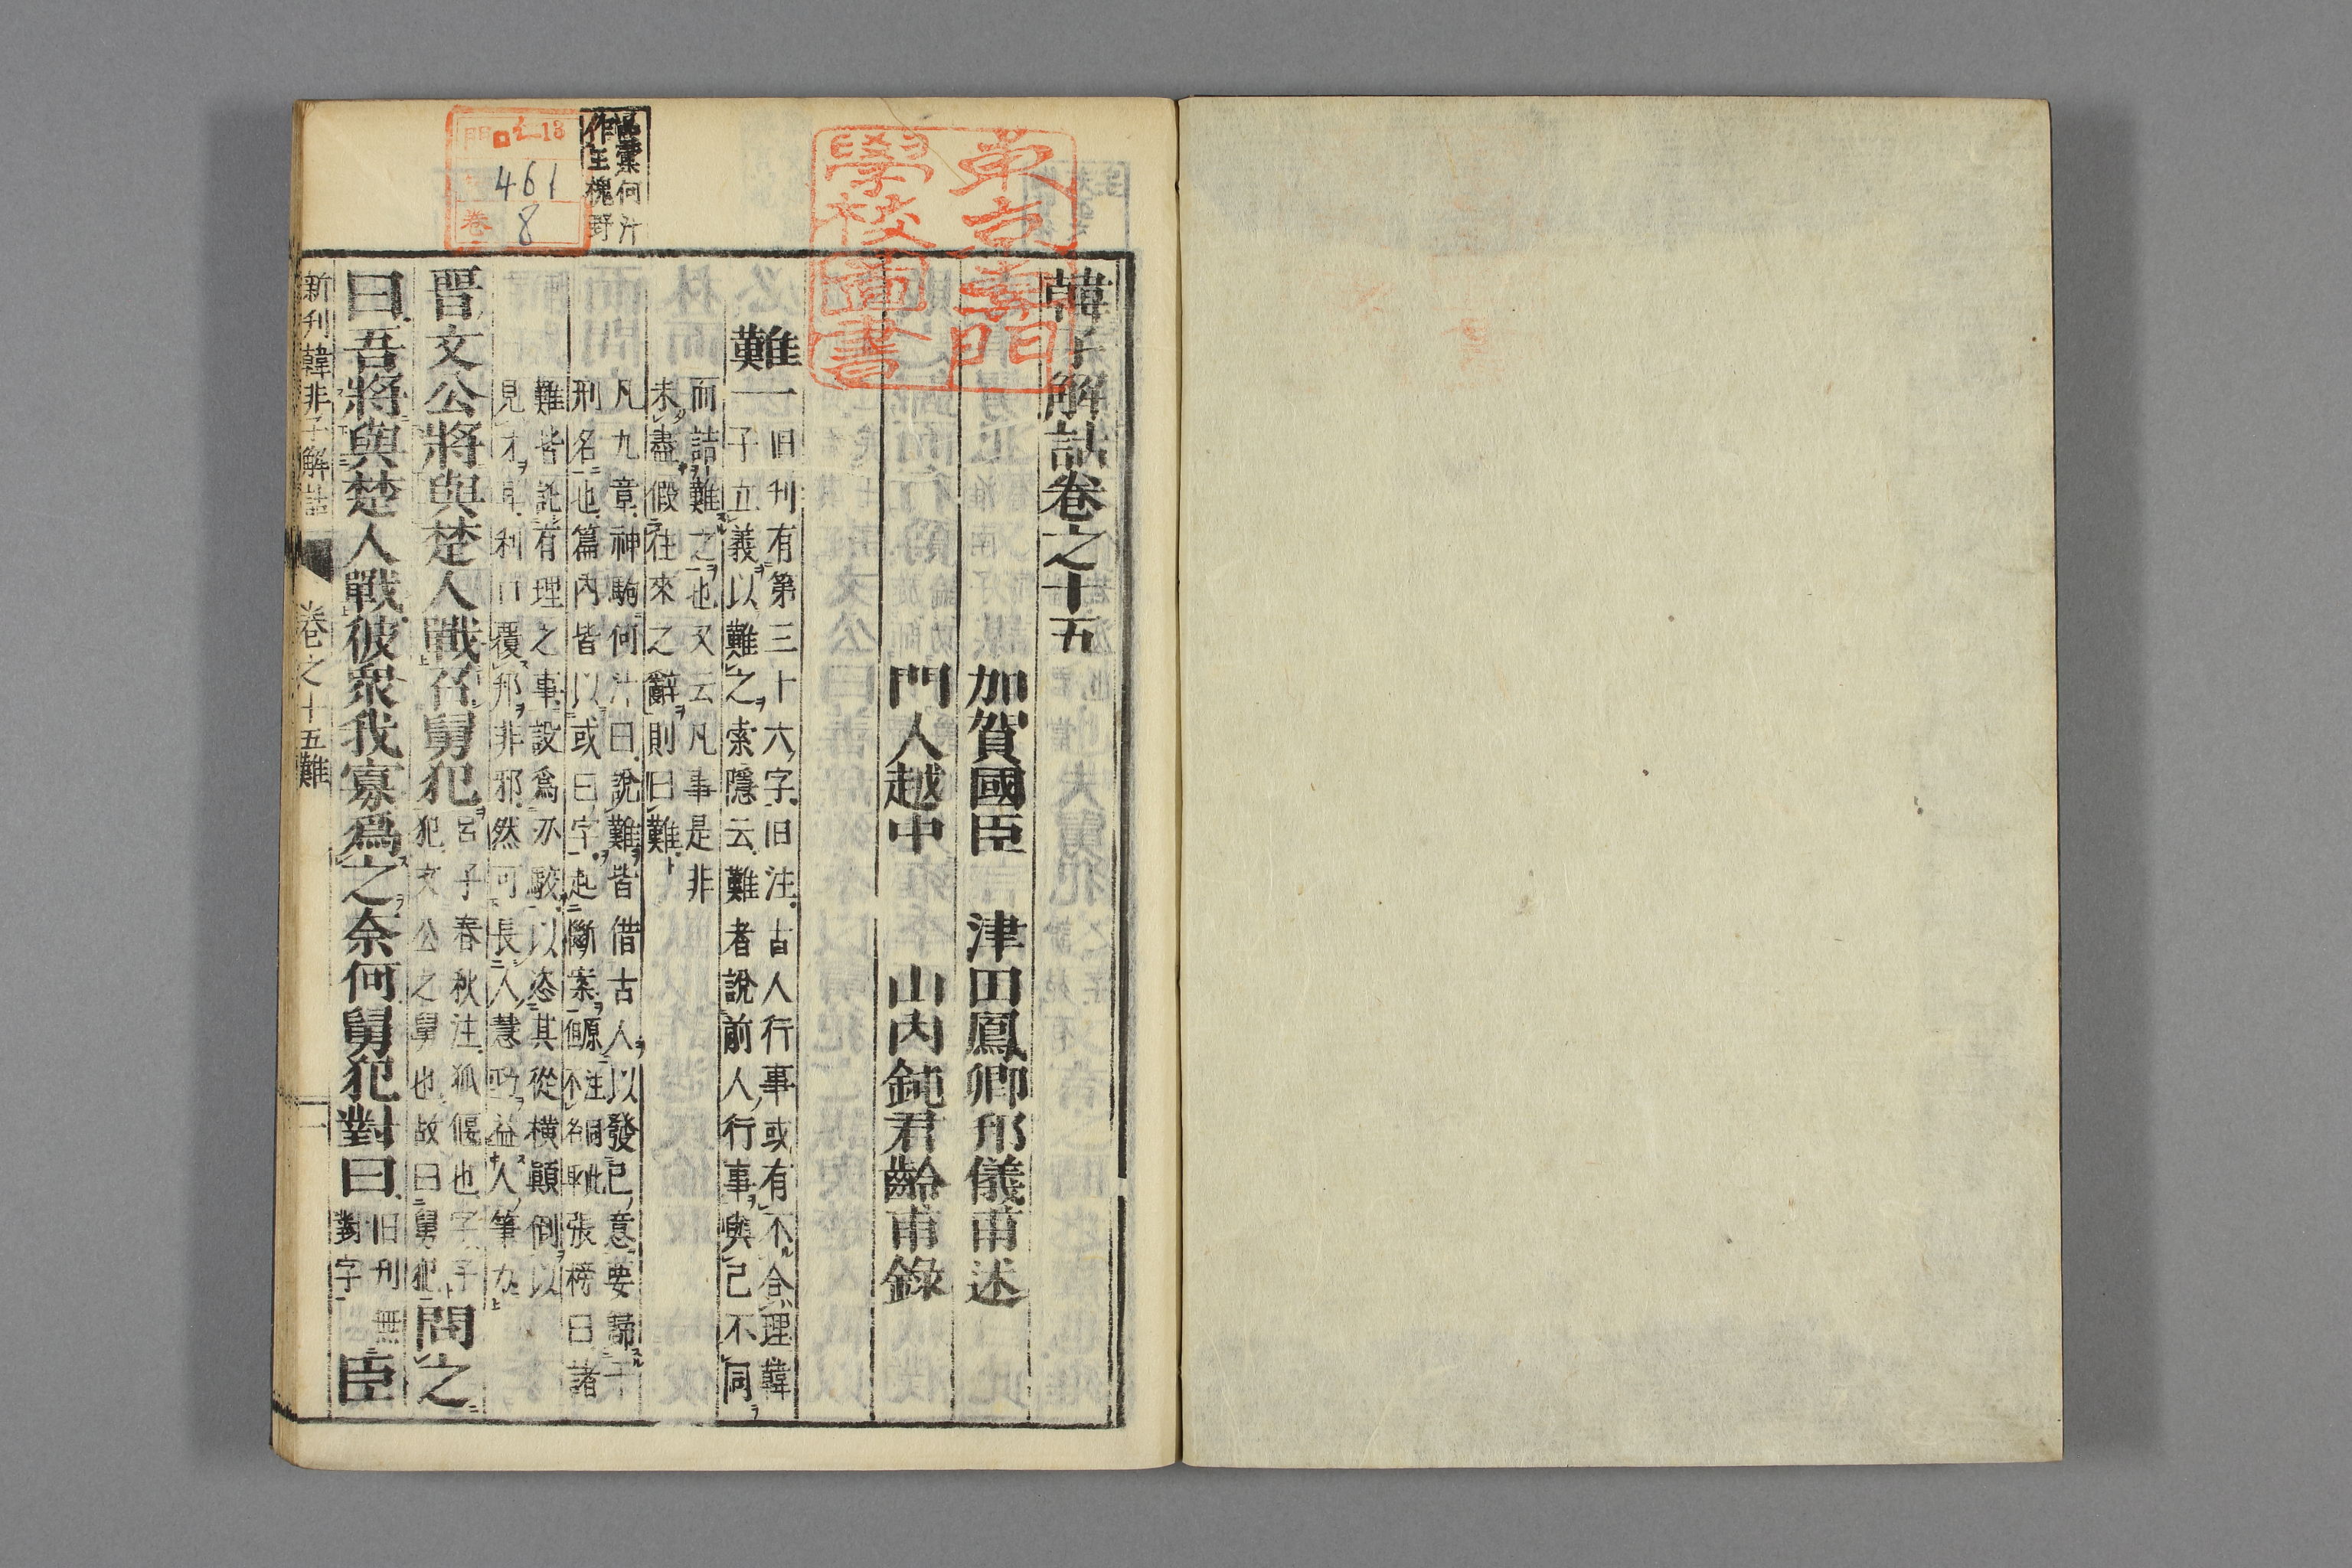 韓子解詁卷之十五
加賀國臣 津田鳳卿邦儀甫述
門人越中 山内鈍君齡甫錄
難一
旧刊有第三十六字旧注古人行事或有不合理韓
子立義以難之索隱云難者說前人行事與己不同
而詰難之也又云凡事是非
未盡假往來之辭則曰難
凡九章神駒何汴曰說難皆借古人以發己意要歸于
刑名也篇內皆以或曰字起斷案
張榜曰諸
難皆說有理之事設爲亦駁以恣其從橫顛倒以
見才耳利口覆邦非邪然可長人慧助益人筆力
晋文公將與楚人戰召舅犯
呂子春秋注狐偃也字子
犯文公之舅也故曰舅犯
問之
曰吾將與楚人戰彼衆我寡爲之奈何舅犯對曰
旧刊無
對字
臣
新刊韓非子解詁 卷之十五難 一
彙何汴
作王槐野
東京專門
學校圖書
門 13
461
卷 8